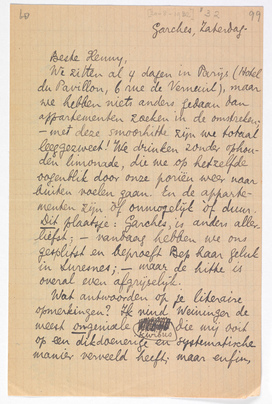 '32
99
Garches, Zaterdag.
Beste Henny,
We zitten al 4 dagen in Parijs (Hotel
du Pavillon, 6 rue de Verneuil), maar
we hebben niets anders gedaan dan
appartementen zoeken in de omstreken;
– met deze smoorhitte zijn we totaal
leeggezweet! We drinken zonder ophou-
den limonade, die we op hetzelfde
oogenblik door onze poriën weer naar
buiten voelen gaan. En de apparte-
menten zijn òf onmogelijk òf duur.
Dit plaatsje: Garches, is anders aller-
liefst; – vandaag hebben we ons
gesplitst en beproeft Bep haar geluk
in Suresnes; – maar de hitte is
overal even afgrijselijk.
Wat antwoorden op je literaire
opmerkingen? Ik vind Weininger de
meest ongeniale die mij ooit
op een dikdoenerige en systematische
manier verveeld heeft; maar enfin,